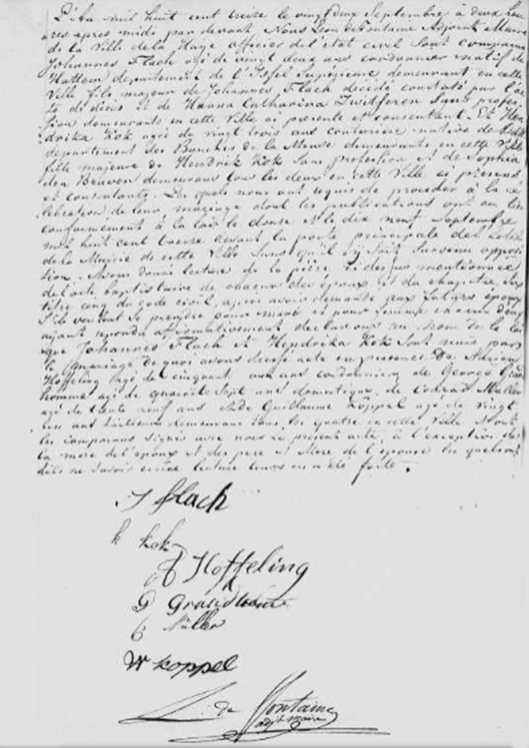 L'An mil huit cent treize le vingt deux Septembre à deux heu
res après midi par devant Nous Leon de fontaine Adjoint Maire
de la Ville de la Haye officier de l'état civil Sont comparus
Johannes Flach agé de vingt deux ans cordonnier natif de
Hattem département de l'Issel Supérieure demeurant en cette
Ville fils majeur de Johannes Flach décédé constaté par l'ac
te de décès et de Hanna Catharina Zwidferen Sans profes
sion demeurante en cette Ville ci présente et consentante. Et Hen
drika Kok agée de vingt trois ans couturière native de
département des Bouches de la Meuse demeurante en cette Ville
fille majeure de Hendrik Kok Sans profession et de Sophia
den Beuvon demeurans tous les deux en cette Ville ci présens
et consentants. Les quels nous ont requis de procéder à la ce
lébration de leur mariage dont les publications ont eu lieu
conformément à la loi le douze et le dix neuf Septembre
mil huit cent treize devant la porte principale de l'hotel
de la Mairie de cette Ville Sans qu'il y Soit Survenu oppo
sition. Avons donné lecture de la pièce ci dessus mentionnée
de l'acte baptistaire de chacun des époux et du chapitre Six
titre cinq du Code civil, après avoir demandé aux futurs époux
S'ils veulent se prendre pour mari et pour femme chacun d'eux
ayant répondu affirmativement déclarons au nom de la loi
que Johannes Flach et Hendrika Kok Sont unis par
le mariage de quoi avons dressé acte en presence De Adrien
Hoffeling agé de cinquant ans cordonnier, de George
agé de quarante Sept ans domestique, de Conrad Muller
agé de trente neuf ans et de Guillaume Koppel agé de vingt
un ans demeurans tous les quatre en cette Ville et ont
les comparans Signés avec nous le présent acte, à l'exception de
la mere de l'époux et des pere et Mere de l'épouse les quels ont
dits ne Savoir écrire lecture leurs en a été faite.
J Flach
h kok
A Hoffeling
G
C Müller
W Koppel
L. de Fontaine
adjt maire